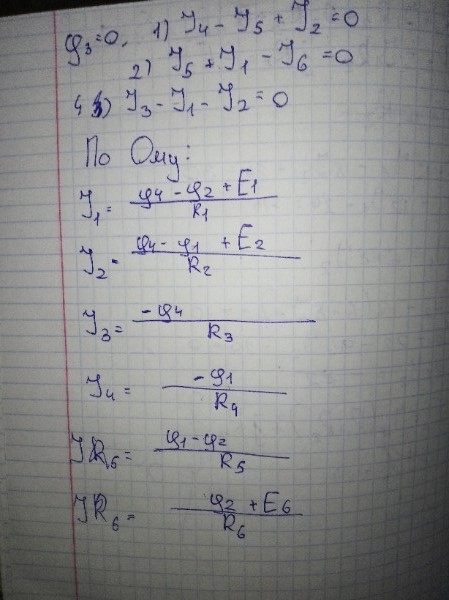 φ₃=0. 1) I₄ - I₅ + I₂ = 0
2) I₅ + I₁ - I₆ = 0
4) I₃ - I₁ - I₂ = 0
По Ому:
I₁ = (φ₄ - φ₂ + E₁) / R₁
I₂ = (φ₄ - φ₁ + E₂) / R₂
I₃ = -φ₄ / R₃
I₄ = -φ₁ / R₄
IR₆ = (φ₁ - φ₂) / R₅
IR₆ = (φ₂ + E₆) / R₆